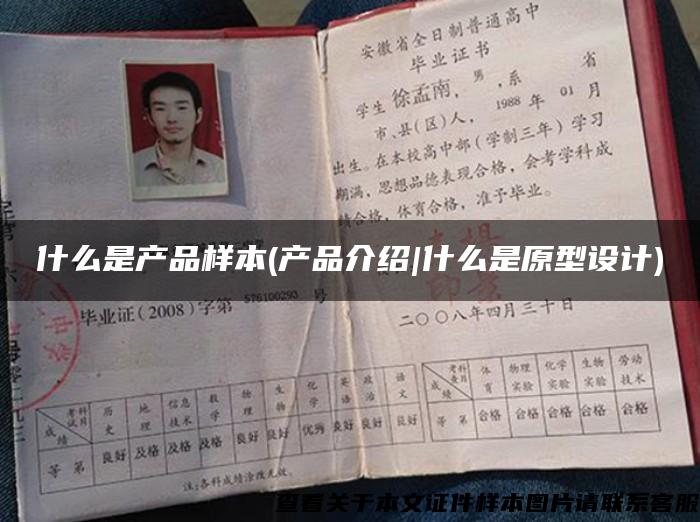 安徽省全日制普通高中
毕业证书
学生徐孟南，男，系 省
市、县(区)人，1988年01月
出生。在本校高中部（学制三年）学习
期满，思想品德表现合格，会考学科成
绩合格，体育合格，准予毕业。
什么是产品样本(产品介绍|什么是原型设计)
毕业证(2008)字第576100293号
二〇〇八年四月三十日
成绩 考试科目 历史 地理 信息技术 数学 物理 生物 化学 英语 政治 语文
等第 良好 及格 及格 及格 良好 良好 优秀 良好 良好 良好
注:各科成绩涂改无效。
成绩 考查科目 体育 物理实验 化学实验 生物实验 劳动技术
等第 合格 合格 合格 合格 合格
查看关于本文证件样本图片请联系客服